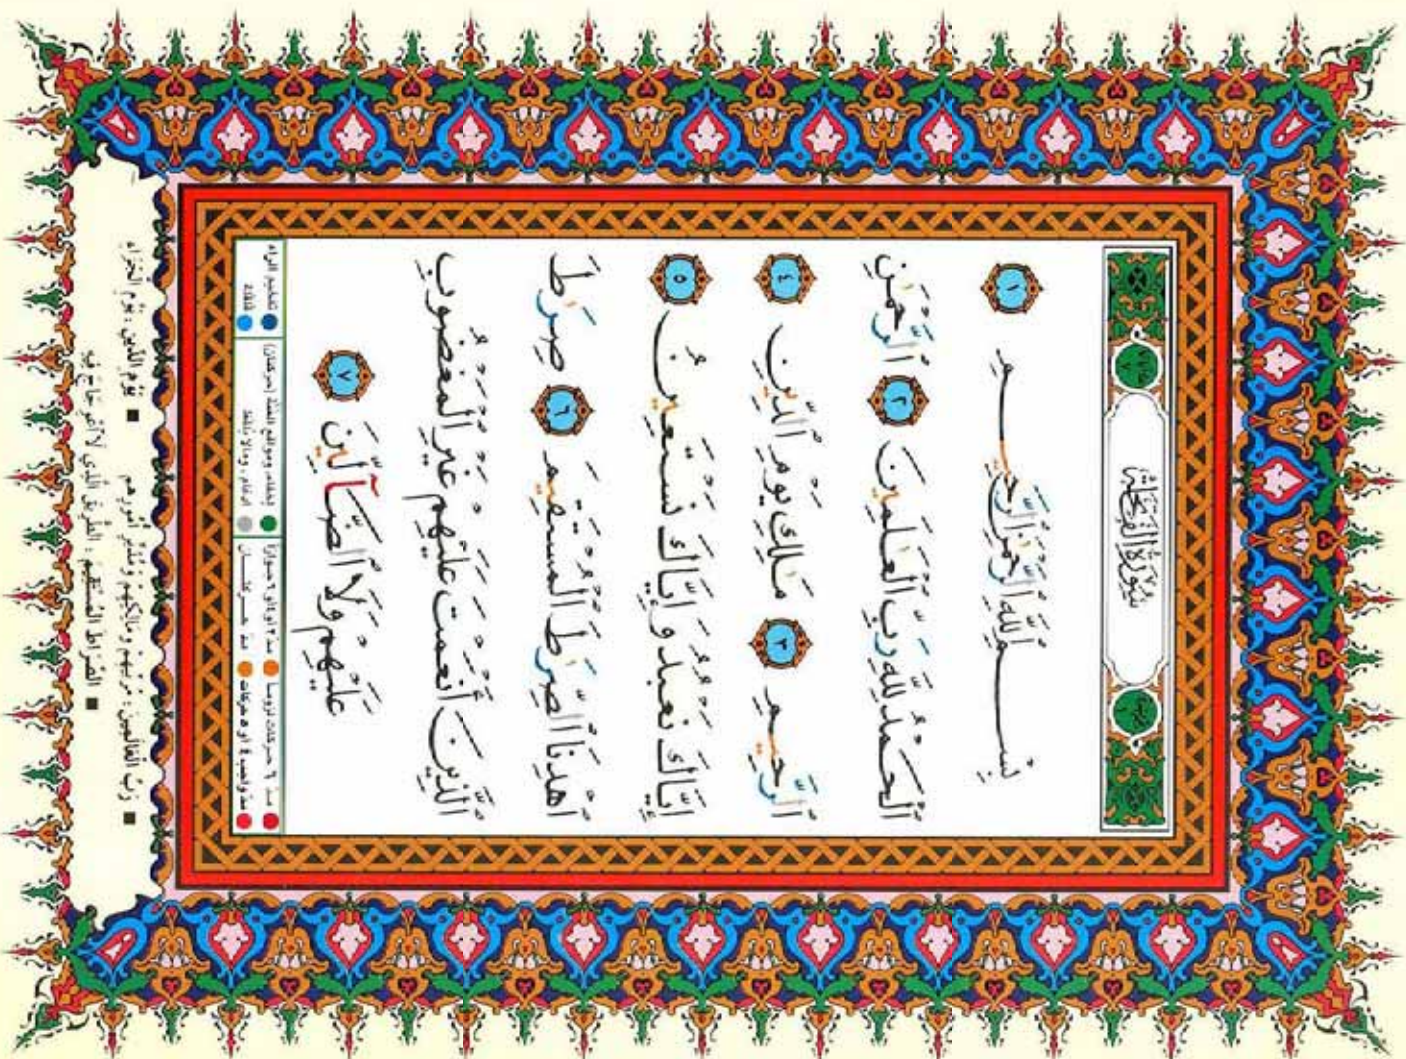 سُورَةُ الْفَاتِحَةِ
بِسْمِ ٱللَّهِ ٱلرَّحْمَٰنِ ٱلرَّحِيمِ ١
ٱلْحَمْدُ لِلَّهِ رَبِّ ٱلْعَٰلَمِينَ ٢ ٱلرَّحْمَٰنِ
ٱلرَّحِيمِ ٣ مَٰلِكِ يَوْمِ ٱلدِّينِ ٤
إِيَّاكَ نَعْبُدُ وَإِيَّاكَ نَسْتَعِينُ ٥
ٱهْدِنَا ٱلصِّرَٰطَ ٱلْمُسْتَقِيمَ ٦ صِرَٰطَ
ٱلَّذِينَ أَنْعَمْتَ عَلَيْهِمْ غَيْرِ ٱلْمَغْضُوبِ
عَلَيْهِمْ وَلَا ٱلضَّآلِّينَ ٧
مدّ ٦ حركات لزوماً مدّ ٢ او ٤ او ٦ جوازاً إخفاء، ومواقع الغُنَّة (حركتان) تفخيم الراء
مدّ واجب ٤ او ٥ حركات مدّ حركتان ادغام، وما لا يُلفظ قلقلة
■ رَبِّ الْعَالَمِينَ : مُرَبِّيهِمْ وَمَالِكِهِمْ وَمُدَبِّرِ أُمُورِهِم ■ يَوْمِ الدِّينِ : يَوْمِ الْجَزَاءِ
■ الصِّرَاطَ الْمُسْتَقِيمَ : الطَّرِيقَ الَّذِي لَا اعْوِجَاجَ فِيهِ